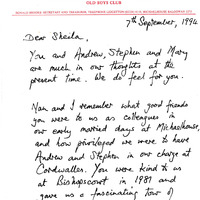 OLD BOYS CLUB
7th September, 1994
Dear Sheila,
You and Andrew, Stephen and Mary
are much in our thoughts at the
present time. We do feel for you.
Nan and I remember what good friends
you were to us as colleagues in
our early married days at Michaelhouse,
and how privileged we were to have
Andrew and Stephen in our charge at
Cordwalles. You were kind to us
at Bishopscourt in 1981 and
gave us a fascinating tour of